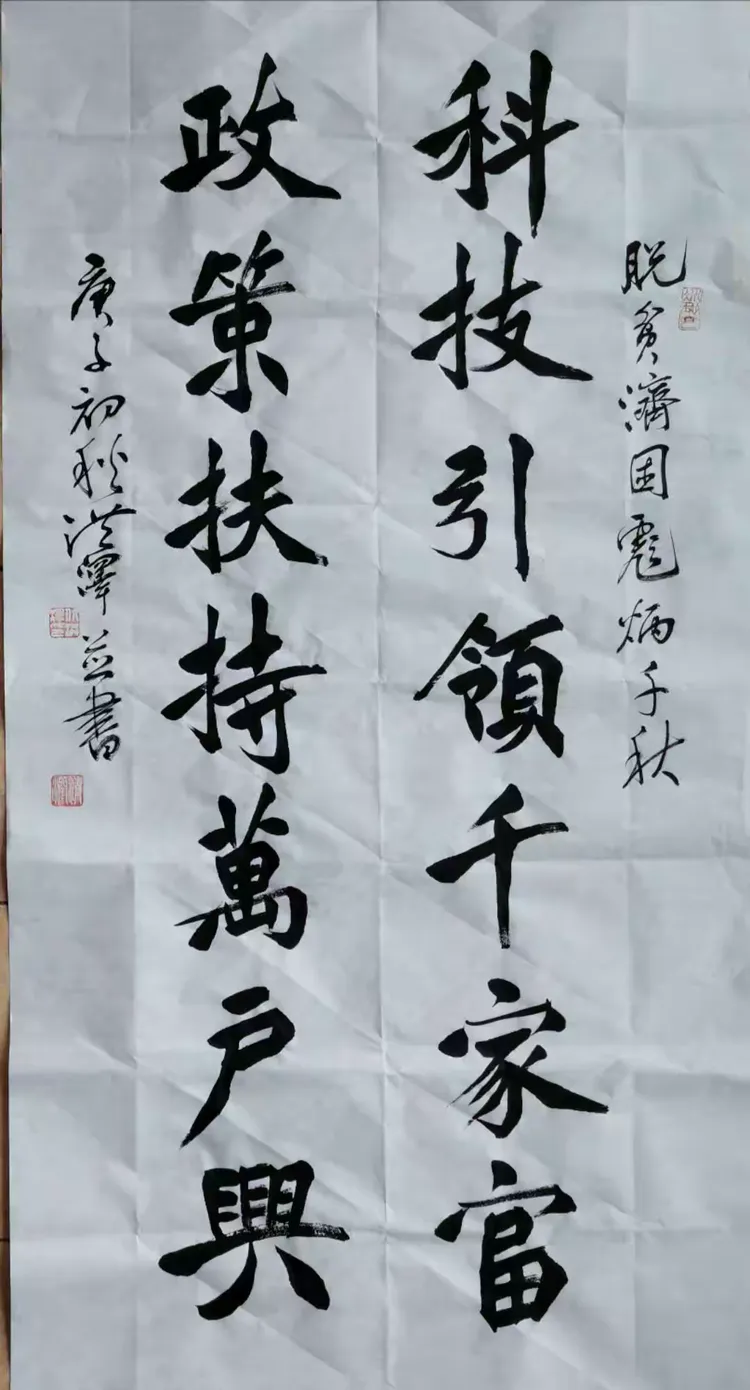 脱贫濟困彪炳千秋
科技引領千家富
政策扶持萬户興
庚子初秋洪澤并書